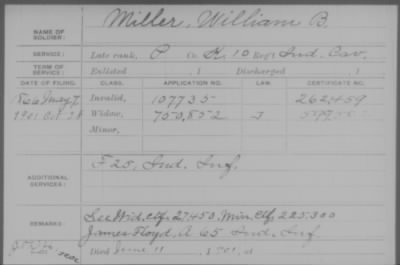 NAME OF SOLDIER: Miller, William B.
SERVICE: Late rank, P Co. H, 10 Reg't Ind. Cav.
TERM OF SERVICE: Enlisted , 1 Discharged , 1
DATE OF FILING. CLASS. APPLICATION NO. LAW. CERTIFICATE NO.
1866 May 7 Invalid, 107735 262,459
1901 Oct 28 Widow, 750,852
Minor,
ADDITIONAL SERVICES: F 25, Ind. Inf.
REMARKS: See Wid. Ctf. 27,450, Min. Ctf. 225,300
James Floyd, A 65 Ind. Inf.
Died June 11, 1901, at